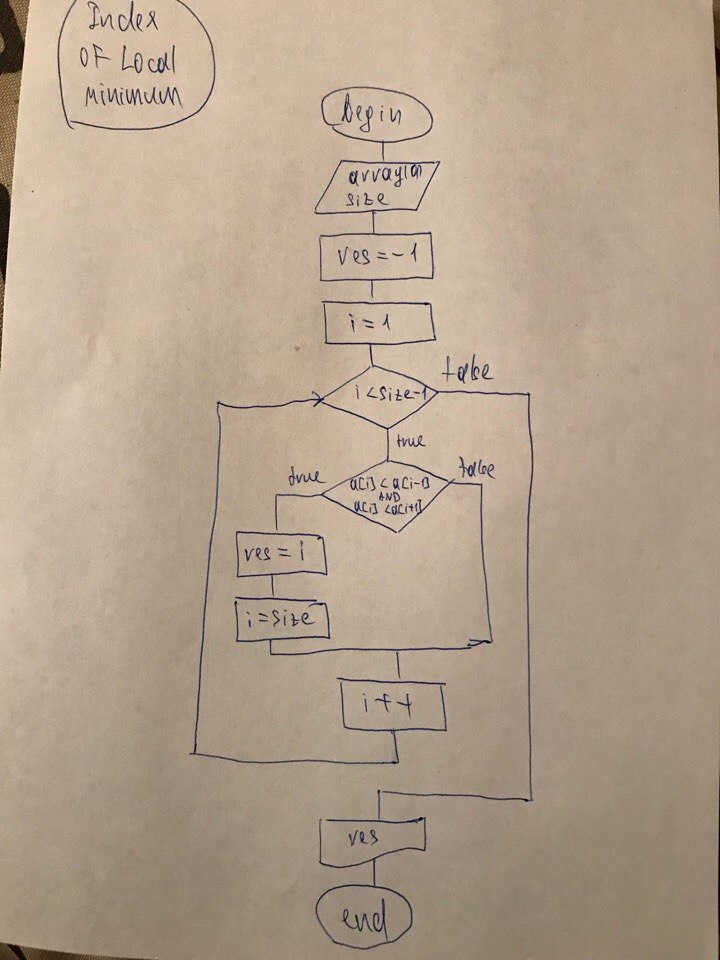 Index
OF Local
minimum
begin
array(a)
size
res = -1
i = 1
i < size-1
false
true
a[i] < a[i-1]
AND
a[i] < a[i+1]
true
false
res = i
i = size
i++
res
end